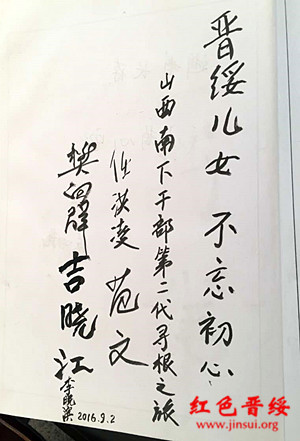 晋绥儿女 不忘初心
山西南下干部第二代寻根之旅
任 范文
樊 吉晓江
李晓
2016.9.2
红色晋绥
www.jinsui.org